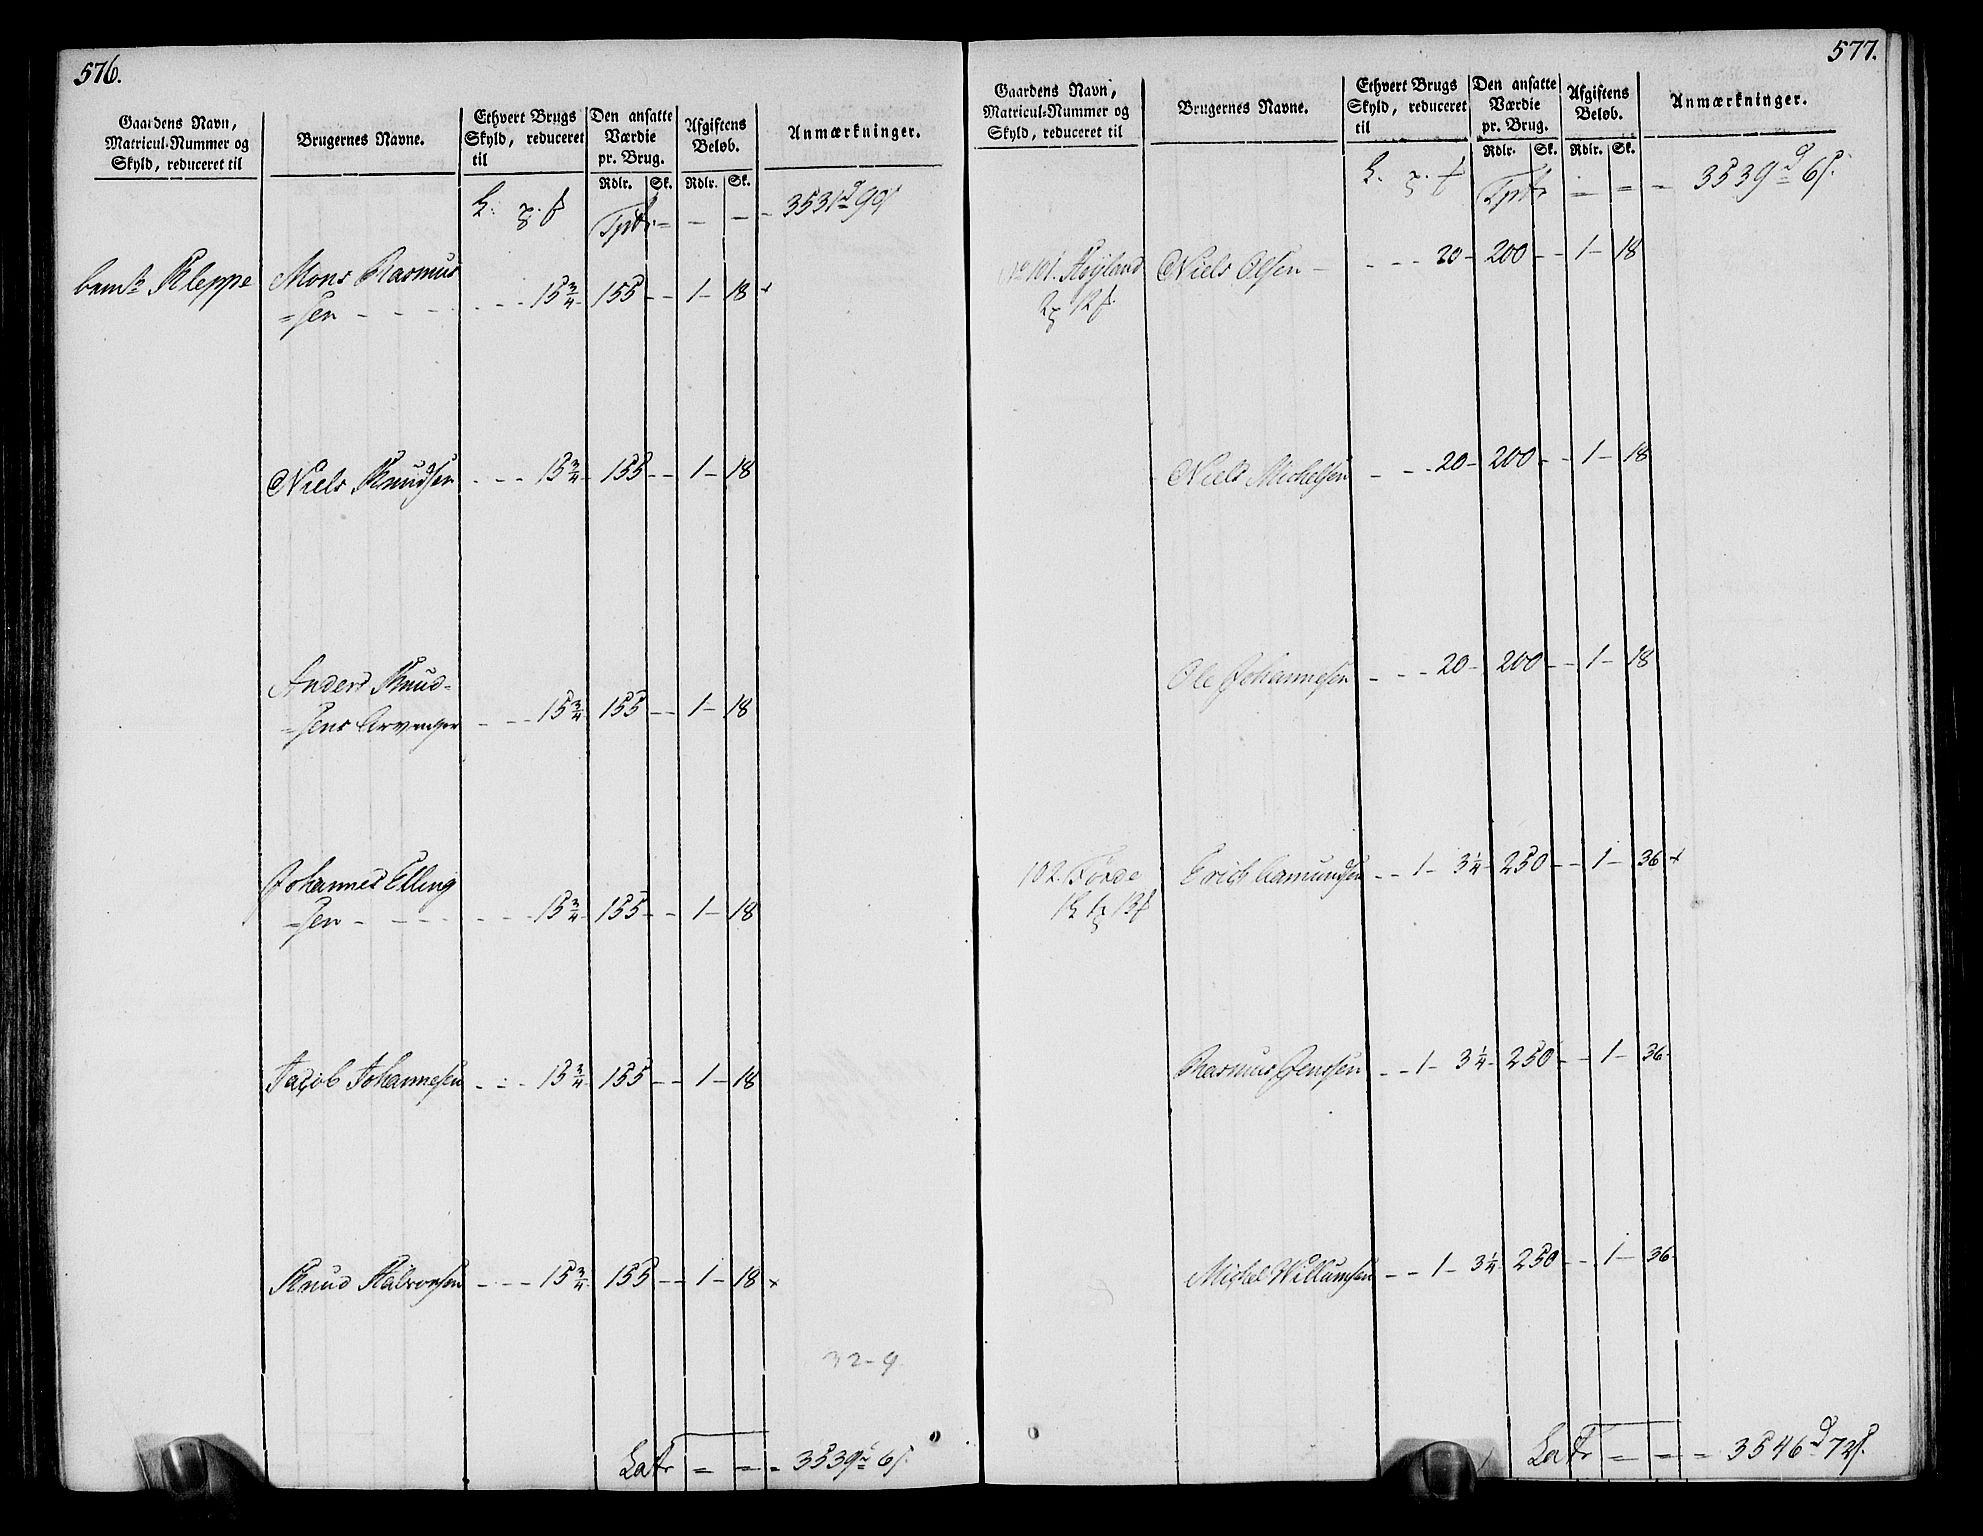 576.
Gaardens Navn,
Matricul-Nummer og
Skyld, reduceret til
Brugernes Navne.
Ethvert Brugs
Skyld, reduceret
til
Den ansatte
Værdie
pr. Brug.
Rdlr. Sk.
Afgiftens
Beløb.
Rdlr. Sk.
Anmærkninger.
Tptr. = – – – 3531 d 90 s
Kleppe Mons Rasmus
=sen – – – – – – 15 3/4 155 – – 1 – 18 +
Niels Knudsen – – – 15 3/4 155 – – 1 – 18
Anders Knud-
=sens Arvinger – – – 15 3/4 155 – – 1 – 18
Johannes Elling
=sen – – – – – – – 15 3/4 155 – – 1 – 18
Jacob Johannesen – – – 15 3/4 155 – – 1 – 18
Knud Halvorsen – – – 15 3/4 155 – – 1 – 18 x
32-9
Latr = = = 3539 d 6 s.
577.
Gaardens Navn,
Matricul-Nummer og
Skyld, reduceret til
Brugernes Navne.
Ethvert Brugs
Skyld, reduceret
til
Den ansatte
Værdie
pr. Brug.
Rdlr. Sk.
Afgiftens
Beløb.
Rdlr. Sk.
Anmærkninger.
Tptr = = = 3539 d 6 s.
101. Høyland Niels Olsen – – – – 20 – 200 – – 1 – 18
Niels Michelsen – – – 20 – 200 – – 1 – 18
Ole Johannesen – – – 20 – 200 – – 1 – 18
102. Førde Erich Aamundsen – – 1 – 3 1/4 – 250 – – 1 – 36 +
Rasmus Jensen – – 1 – 3 1/4 – 250 – – 1 – 36
Michel Willumsen – – 1 – 3 1/4 – 250 – – 1 – 36
Latr = = = 3546 d 72 s.